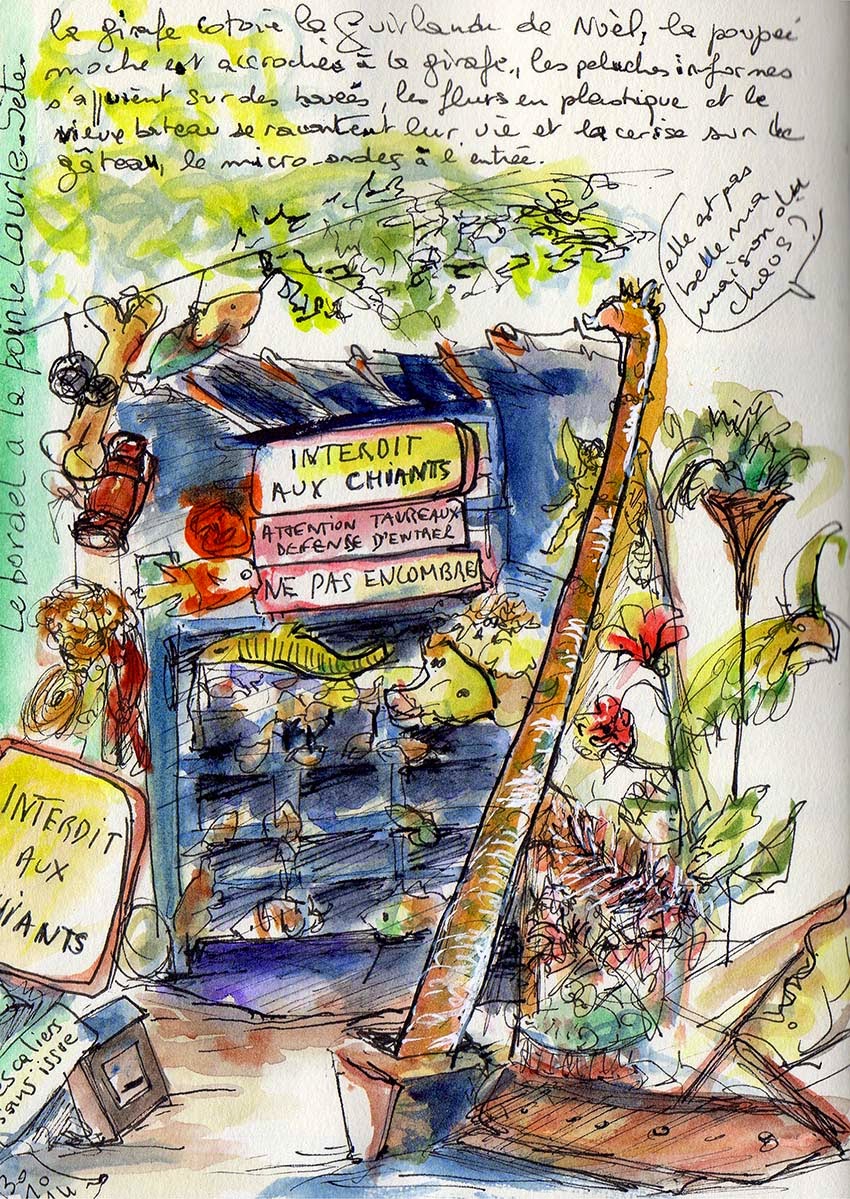 la girafe cotoie la guirlande de Noèl, la poupée
moche est accrochée à la girafe, les peluches informes
s'appuient sur des bouées, les fleurs en plastique et le
vieux bateau se racontent leur vie et la cerise sur le
gâteau, le micro-ondes à l'entrée.
Le bordel a la pointe Courte. Sète.
elle est pas
belle ma
maison du
chaos?
INTERDIT
AUX CHIANTS
ATTENTION TAUREAUX
DEFENSE D'ENTRER
NE PAS ENCOMBRER
INTERDIT
AUX
HIANTS
escaliers
sans issue